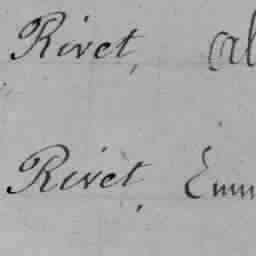 Rivet, Al
Rivet, Emm